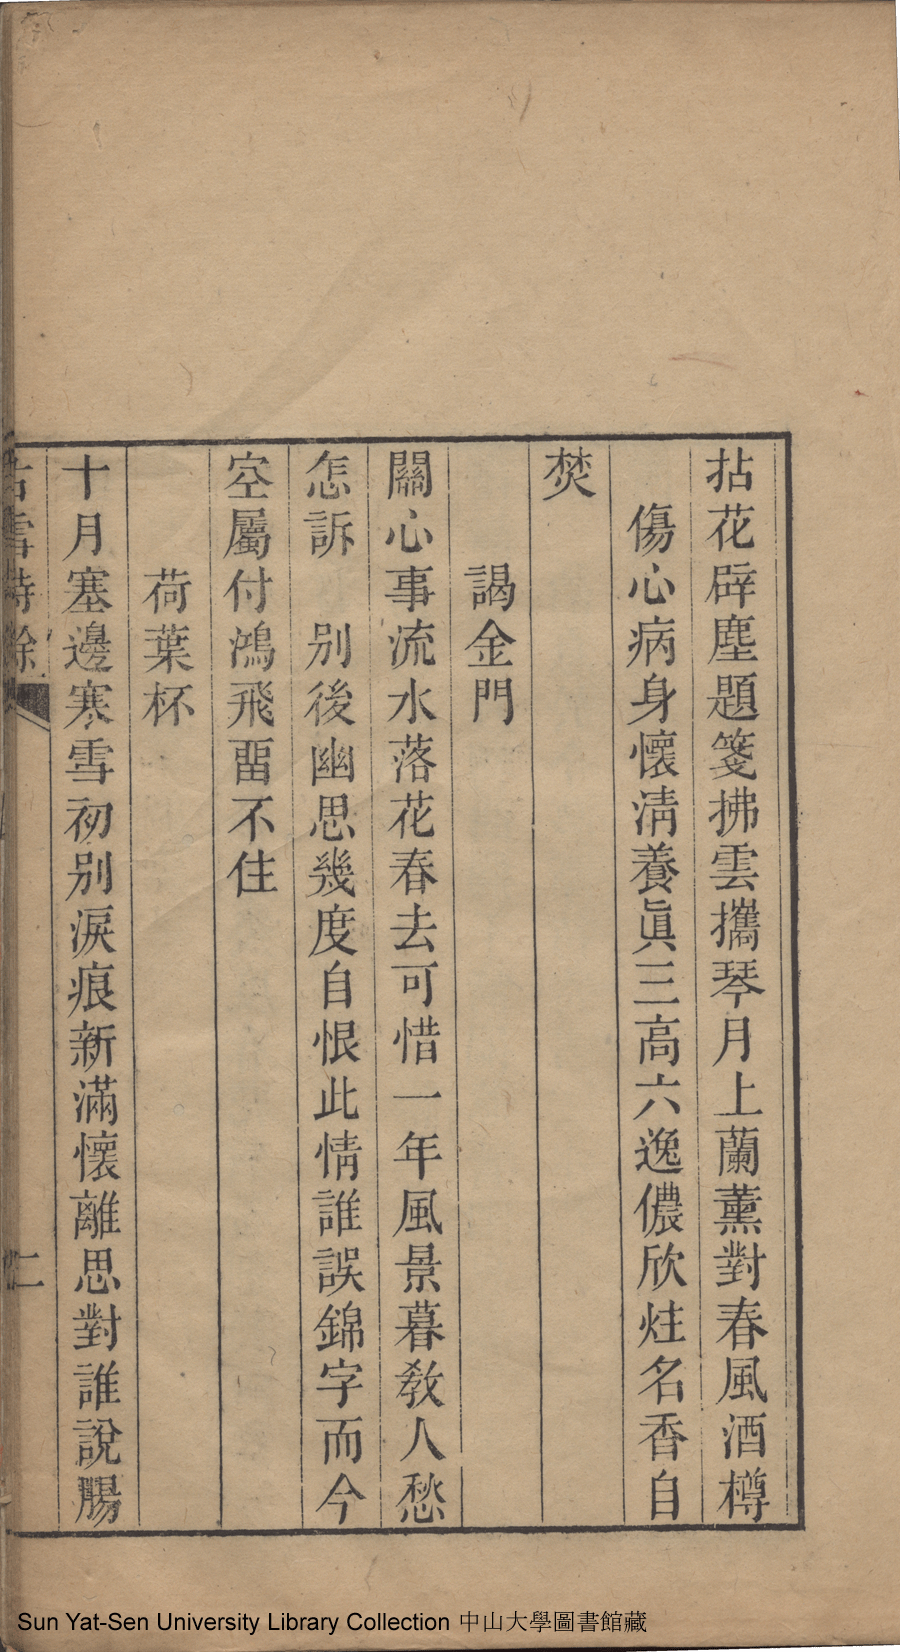 拈花辟塵題箋拂雲攜琴月上蘭薰對春風酒樽
傷心病身懷淸養眞三高六逸儂欣炷名香自
焚
謁金門
關心事流水落花春去可惜一年風景暮敎人愁
怎訴 别後幽思幾度自恨此情誰誤錦字而今
空屬付鴻飛畱不住
荷葉杯
十月塞邊寒雪初别淚痕新滿懷離思對誰說腸
古雪詩餘
二
Sun Yat-Sen University Library Collection 中山大學圖書館藏